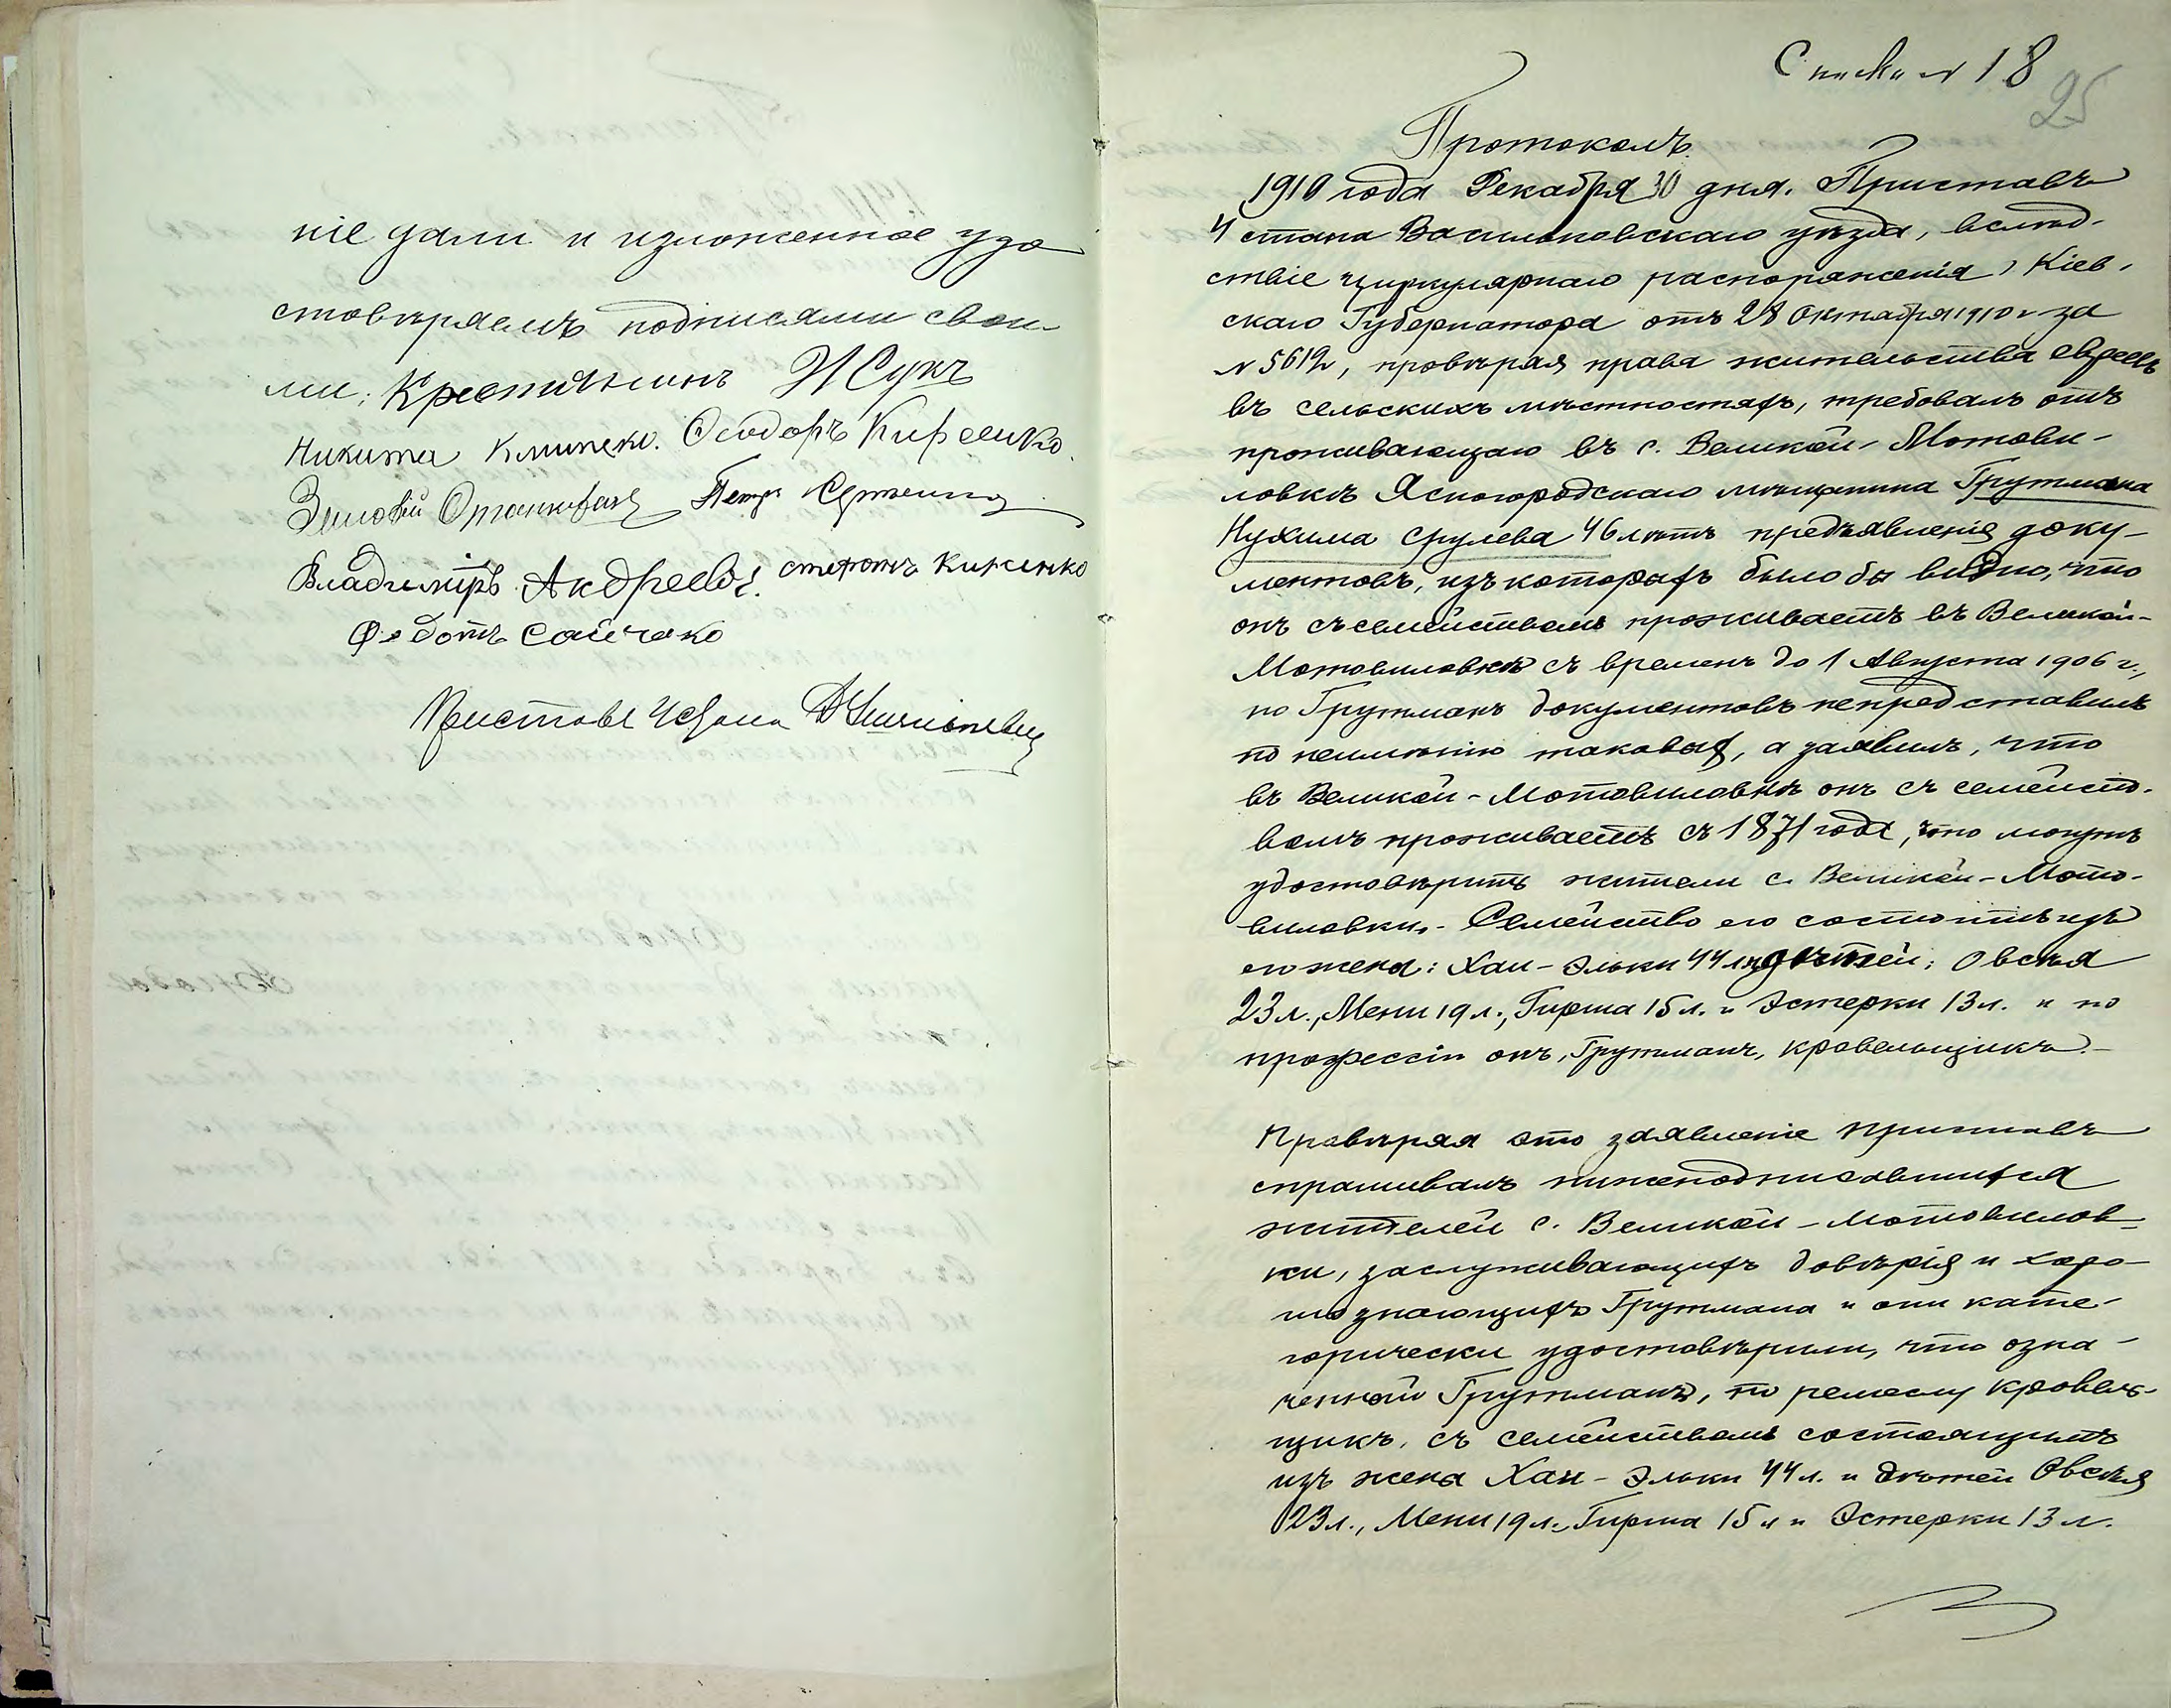 ніе дали и изложенное удо
стовѣряемъ подписями свои-
ми: Крестьянинъ Жукъ
Никита Клименко. Ѳеодоръ Кирѣенко.
Петръ
Владиміръ Андреевъ.
Федотъ Сайченко
Приставъ 4 стана
Списки № 18
25
Протоколъ.
1910 года Декабря 30 дня. Приставъ
4 стана Васильковскаго уѣзда, вслѣд-
ствіе циркулярнаго распоряженія Кіев-
скаго Губернатора отъ 28 Октября 1910 г. за
№ 5612, провѣряя права жительства евреевъ
въ сельскихъ мѣстностяхъ, требовалъ отъ
проживающаго въ с. Великой-Мотови-
ловкѣ Ясногородскаго мѣщанина Грутмана
Нухима Срулева 46 лѣтъ предъявленія доку-
ментовъ, изъ которыхъ было бы видно, что
онъ съ семействомъ проживаетъ въ Великой-
Мотовиловкѣ съ времени до 1 Августа 1906 г.,
но Грутманъ документовъ непредставилъ
по неимѣнію таковыхъ, а заявилъ, что
въ Великой-Мотовиловкѣ онъ съ семейст-
вомъ проживаетъ съ 1871 года, что могутъ
удостовѣрить жители с. Великой-Мото-
виловки. Семейство его состоитъ изъ
его жены: Хаи-Эльки 44 л. дѣтей: Овсѣя
23 л., Мени 19 л., Гирша 15 л. и Эстерки 13 л. и по
профессіи онъ, Грутманъ, кровельщикъ.-
Провѣряя это заявленіе Приставъ
спрашивалъ нижеподписавшихся
жителей с. Великой-Мотовилов-
ки, заслуживающихъ довѣрія и хоро-
шо знающихъ Грутмана и они кате-
горически удостовѣрили, что озна-
ченный Грутманъ, по ремеслу кровель-
щикъ, съ семействомъ состоящимъ
изъ жены Хаи-Эльки 44 л. и дѣтей Овсѣя
23 л., Мени 19 л., Гирша 15 л. и Эстерки 13 л.